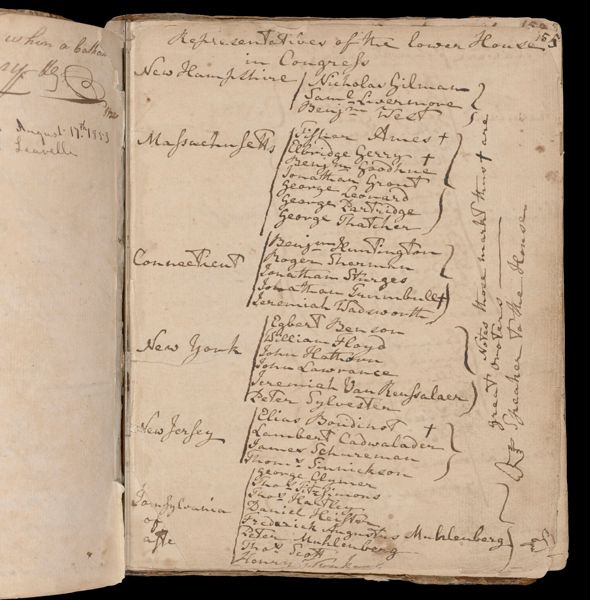 when a
August 17th 1853
Leavelle
155
Representatives of the lower House
in Congress
New Hampshire Nicholas Gilman
Saml Livermore
Benjn West
Massachusetts Fisher Ames +
Elbridge Gerry +
Benjn Goodhue
Jonathan Grout
George Leonard
George Partridge
George Thatcher
Connecticut Benjn Huntington
Roger Sherman
Jonathan Sturges
Jonathan Trumbull +
Jeremiah Wadsworth
New York Egbert Benson
William Floyd
John Hathorn
John Lawrance
Jeremiah Van Rensalaer
Peter Sylvester
New Jersey Elias Boudinot +
Lambert Cadwalader
James Schureman
Thoms Sinnickson
Pensylvania George Clymer
Thos Fitzsimons
Thos Hartley
Daniel Heister
Frederick Augustus Muhlenberg
Peter Muhlenberg
Thos Scott
Henry
Note those markt thus + are
great orators
Speaker to the House